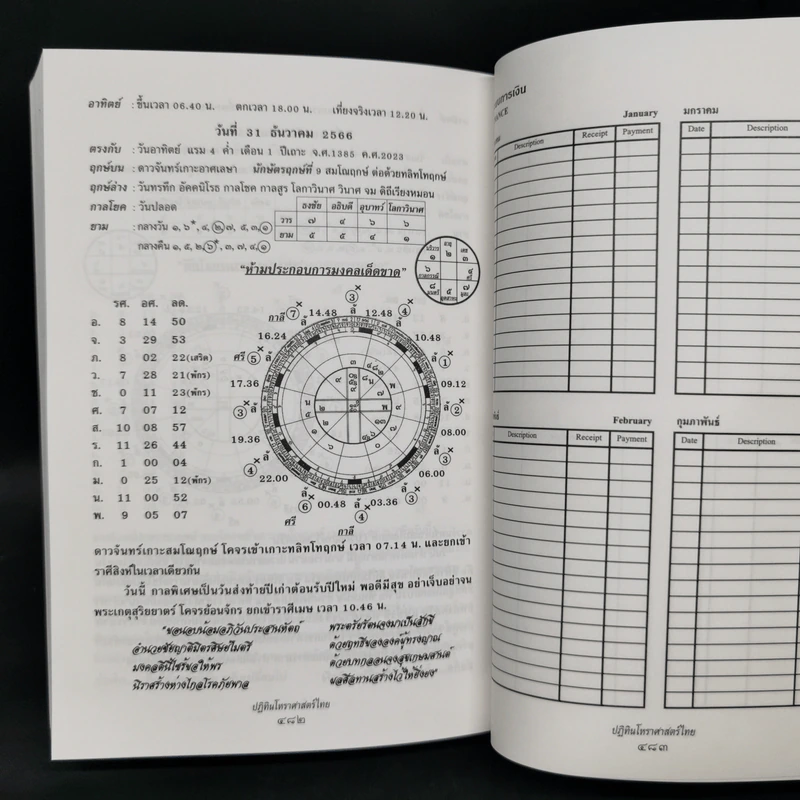 อาทิตย์ : ขึ้นเวลา 06.40 น. ตกเวลา 18.00 น. เที่ยงจริงเวลา 12.20 น.
วันที่ 31 ธันวาคม 2566
ตรงกับ : วันอาทิตย์ แรม ๔ ค่ำ เดือน 1 ปีเถาะ จ.ศ.1385 ค.ศ.2023
ฤกษ์บน : ดาวจันทร์เกาะอาศเลษา นักษัตรฤกษ์ที่ 9 สมโณฤกษ์ ต่อด้วยทลิทโทฤกษ์
ฤกษ์ล่าง : วันทรทึก อัคคนิโรธ กาลโชค กาลสูร โลกาวินาศ วินาศ จม ดิถีเรียงหมอน
กาลโยค : วันปลอด
ธงชัย อธิบดี อุบาทว์ โลกาวินาศ
วาร ๗ ๔ ๖ ๖
ยาม ๕ ๕ ๔ ๑
ยาม : กลางวัน ๑, ๖*, ๔, ๒, ๗, ๕, ๓, ๑
กลางคืน ๑, ๕, ๒, ๖*, ๓, ๗, ๔, ๑
"ห้ามประกอบการมงคลเด็ดขาด"
รศ. อศ. ลด.
อ. 8 14 50
จ. 3 29 53
ภ. 8 02 22 (เสริด)
ว. 7 28 21 (พักร)
ช. 0 11 23 (พักร)
ศ. 7 07 12
ส. 10 08 57
ร. 11 26 44
ก. 1 00 04
ม. 0 25 12 (พักร)
น. 11 00 52
พ. 9 05 07
กาลี 14.48 12.48
16.24 10.48
ศรี 09.12
17.36
08.00
19.36
06.00
22.00
00.48 03.36
ศรี
กาลี
ดาวจันทร์เกาะสมโณฤกษ์ โคจรเข้าเกาะทลิทโทฤกษ์ เวลา 07.14 น. และยกเข้า
ราศีสิงห์ในเวลาเดียวกัน
วันนี้ กาลพิเศษเป็นวันส่งท้ายปีเก่าต้อนรับปีใหม่ พอดีมีสุข อย่าเจ็บอย่าจน
พระเกตุสุริยยาตร์ โคจรย้อนจักร ยกเข้าราศีเมษ เวลา 10.46 น.
"ขอนอบน้อมอภิวันประสานหัตถ์ พระตรัยรัตนจงมาเป็นสักขี
อำนวยชัยญาติมิตรศิษย์ไมตรี ด้วยฤทธีขององค์ผู้ทรงญาณ
มงคลดีนี้ไซร้ขอให้พร ด้วยบทกลอนจงสุขเกษมสานต์
นิราศร้างห่างไกลโรคภัยพาล ผลศีลทานสร้างไว้ให้ยั่งยง"
ปฏิทินโหราศาสตร์ไทย
๔๘๒
การเงิน
January มกราคม
Description Receipt Payment Date Description
February กุมภาพันธ์
Description Receipt Payment Date Description
ปฏิทินโหราศาสตร์ไทย
๔๘๓